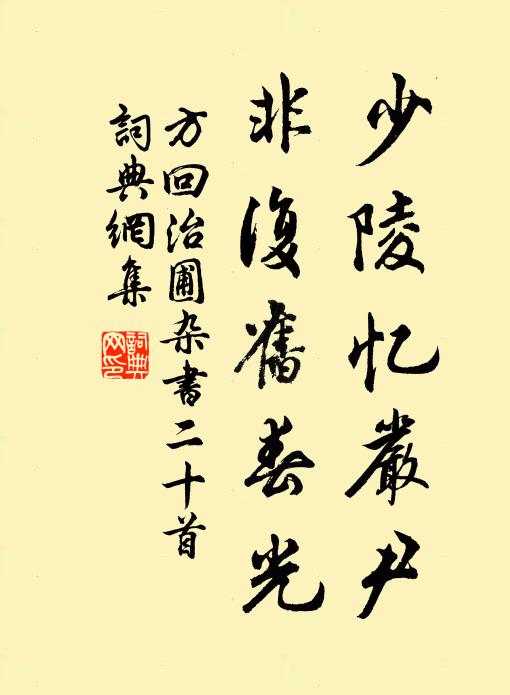 少陵忆嚴尹
非復舊春光
方回治圃杂書二十首
詞典網集
詞典网印